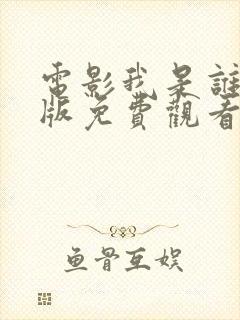 電影我是誰
版免費觀看
鱼骨互娱